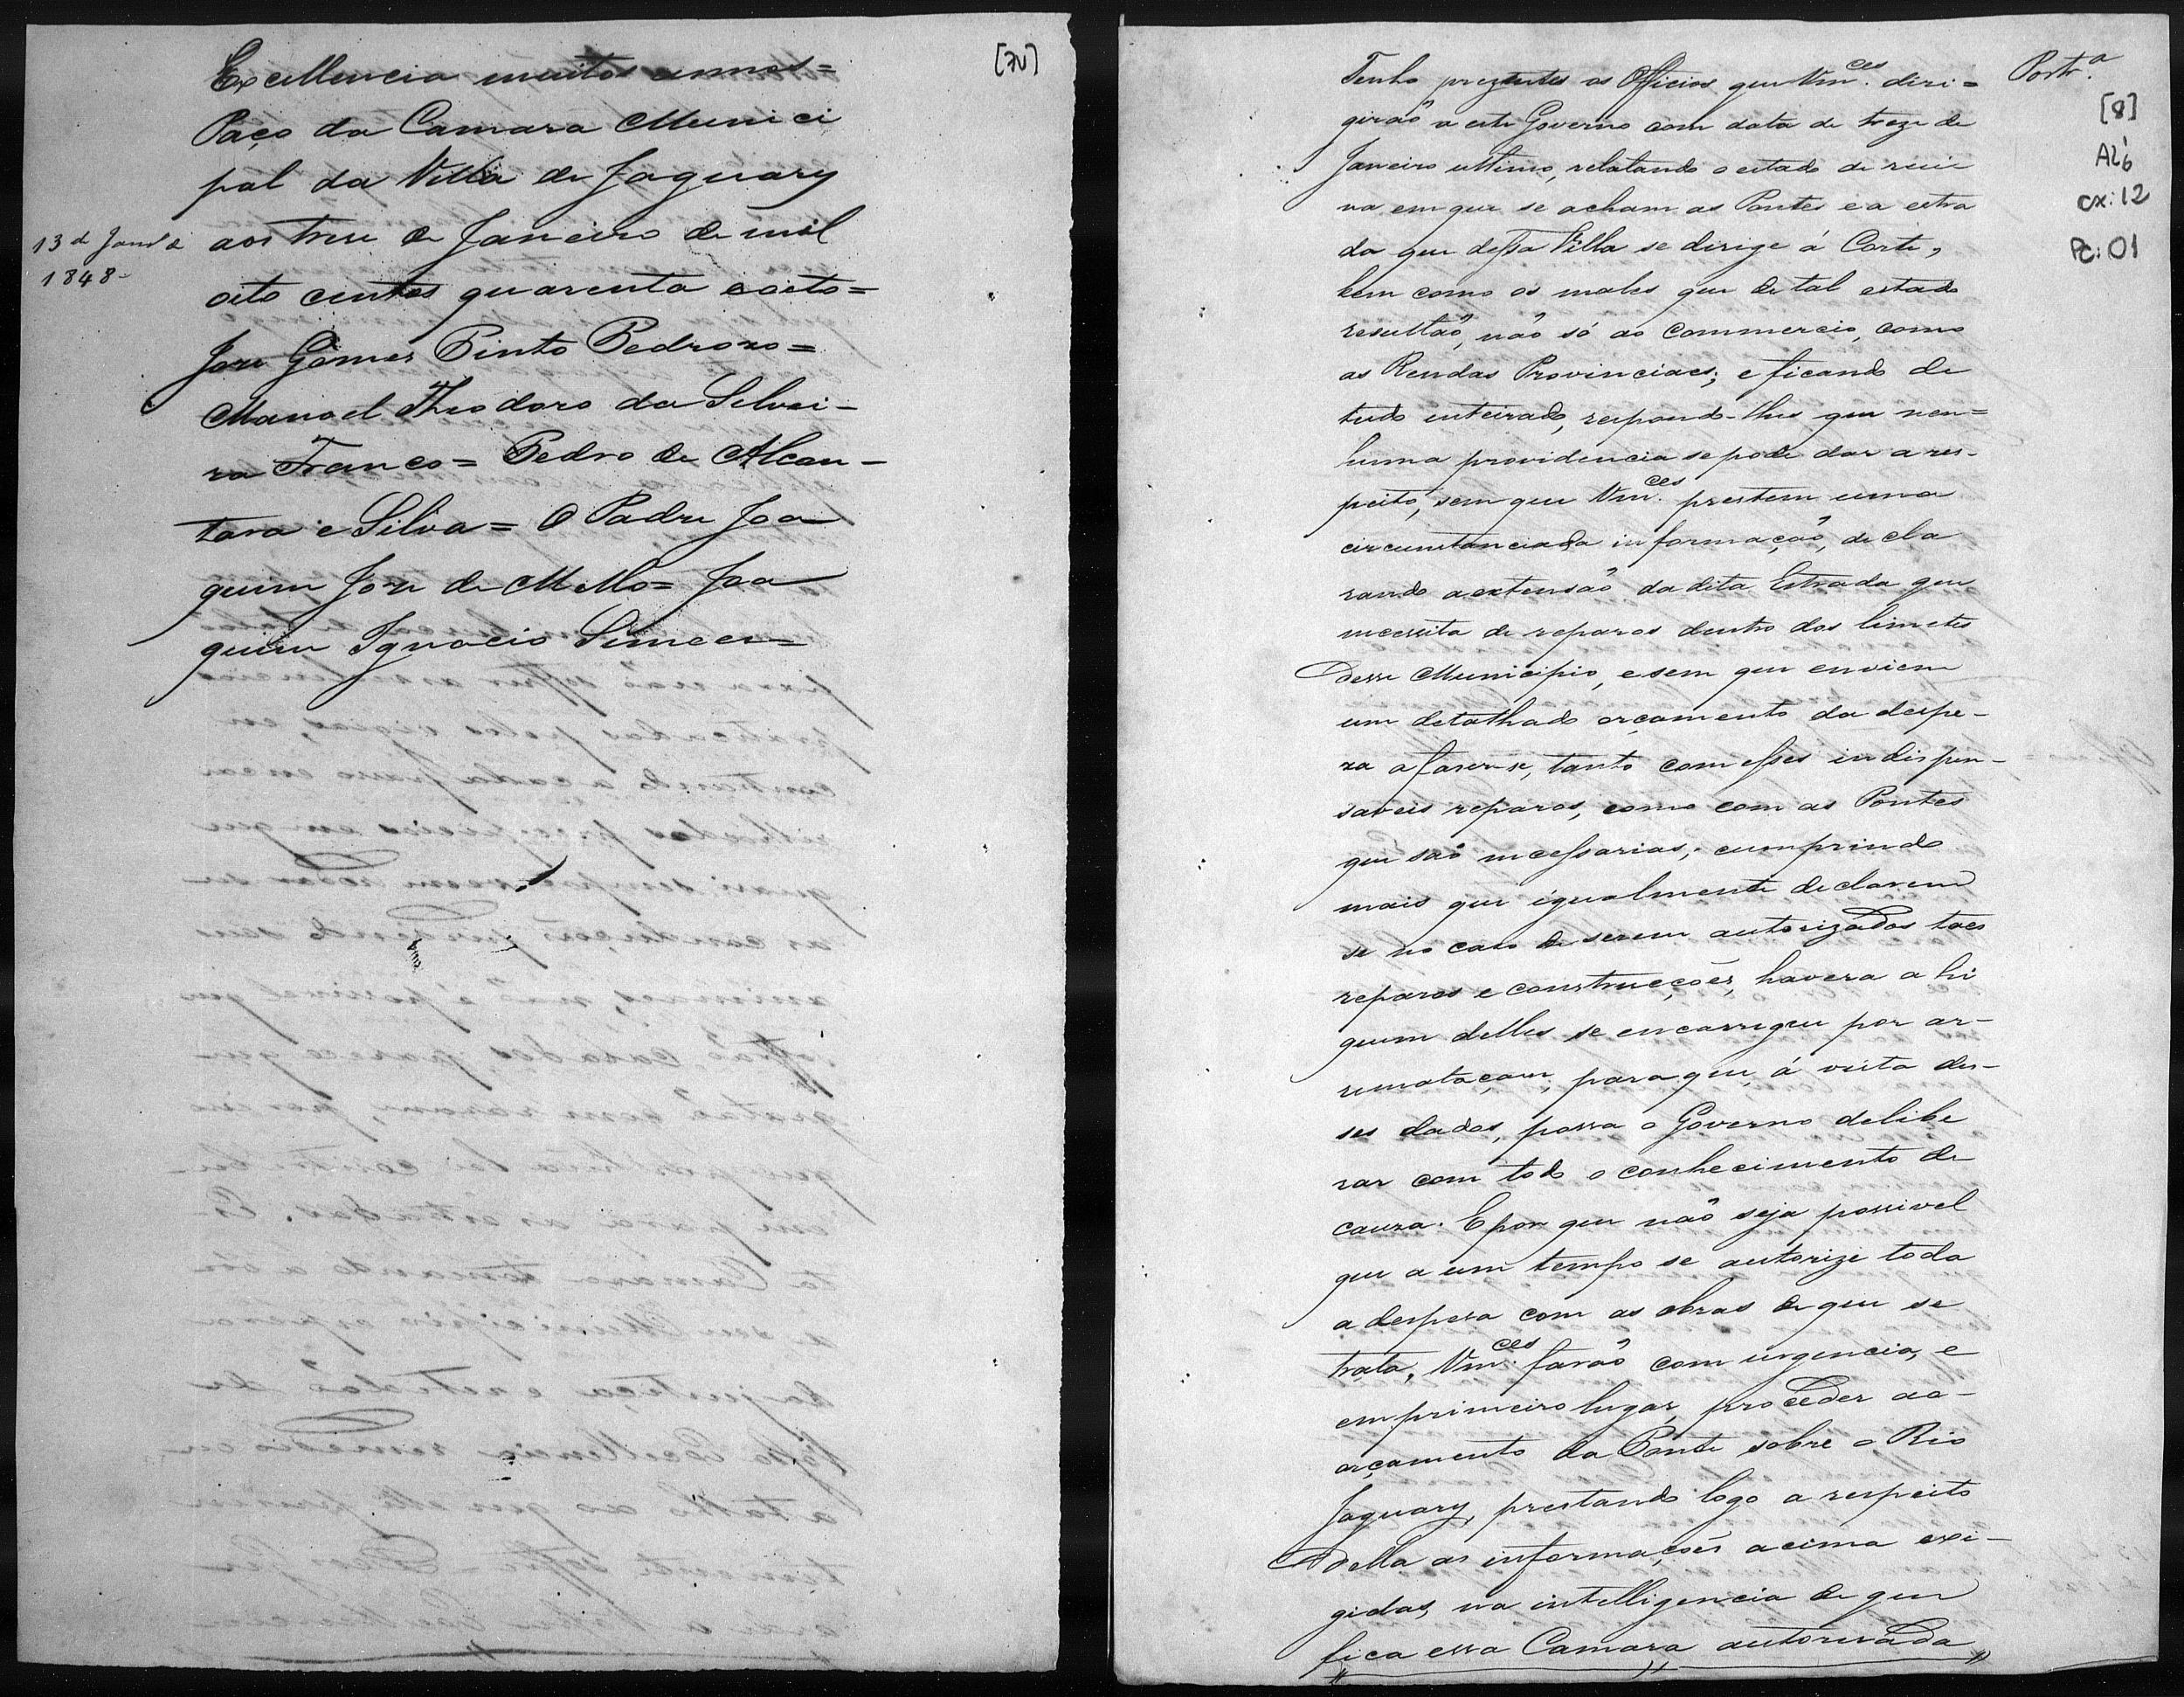 [7v]
Excellencia muitos annos=
Paço da Camara Munici
pal da Villa de Jaguary
13 de Janrº de
1848-
aos trese de Janeiro de mil
oito centos quarenta e oito=
Jose Gomes Pinto Pedrozo=
Manoel Theodoro da Silvei-
ra Franco= Pedro de Alcan-
tara e Silva= O Padre Joa
quim Jose de Mello= Joa
quim Ignacio
Portr.ª
[8]
cx: 12
Pc: 01
Tenho prezentes os Officios que Vm.ces diri=
girão a este Governo com data de treze de
Janeiro ultimo, relatando o estado de rui
na em que se acham as Pontes e a estra
da que dessa Villa se dirige á Corte,
bem como os males que de tal estado
resultão, não só ao Commercio, como
as Rendas Provinciaes; e ficando de
tudo inteirado, respondo-lhes que nen=
huma providencia se pode dar a res-
peito, sem que Vm.ces prestem uma
circumstanciada informação, decla
rando a extensão da dita Estrada que
necessita de reparos dentro dos limetes
desse Municipio, e sem que enviem
um detalhado orçamento da despe-
za a faser-se, tanto com esses indispen-
saveis reparos, como com as Pontes
que são necessarias; cumprindo
mais que igualmente declarem
se no caso de serem autorizados taes
reparos e construcções, havera ahi
quem delles se encarregue por ar-
rematação; para que á vista des-
ses dados, possa o Governo delibe
rar com todo o conhecimento de
cauza. E por que não seja possivel
que a um tempo se autorize toda
a despesa com as obras de que se
trata, Vm.ces farão com urgencia, e
em primeiro lugar, proceder ao-
orçamento da Ponte sobre o Rio
Jaguary, prestando logo a respeito
della as informações acima exi-
gidas, na intelligencia de que
fica essa Camara autorisada